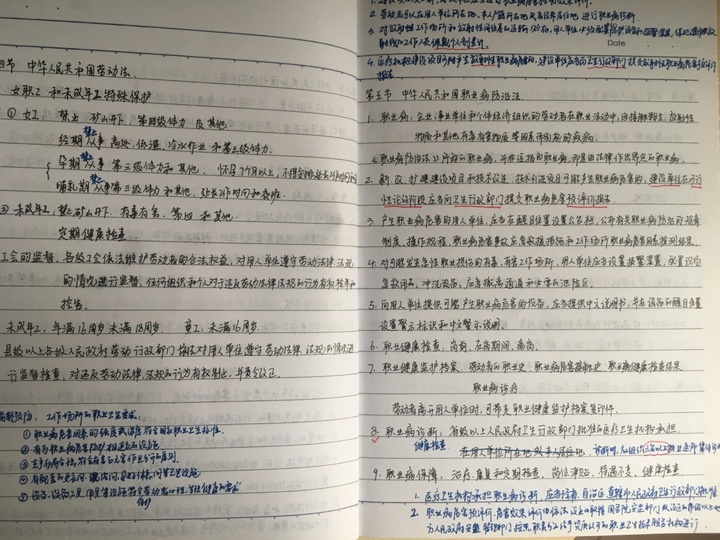 四节 中华人民共和国劳动法.
女职工和未成年工特殊保护
① 女工 禁止 矿山井下、第四级体力 及 其他.
经期 禁止从事 高处、低温、冷水作业 和 第三级体力.
孕期 禁止从事 第三级体力和 其他, 怀孕7个月以上,不得安排延长工作时间
哺乳期 禁止从事 第三级体力 和 其他, 延长工作时间和夜班.
② 未成年工: 禁止 矿山井下、有毒有害、第四 和 其他.
定期健康检查.
工会的监督, 各级工会依法维护劳动者的合法权益, 对用人单位遵守劳动法律法规
的情况进行监督, 任何组织和个人对于违反劳动法律法规的行为有权检举和
控告.
未成年工, 年满16周岁未满18周岁 童工, 未满16周岁.
县级以上各级人民政府劳动行政部门依法对用人单位遵守劳动法律、法规的情况进
行监督检查, 对违反劳动法律、法规的行为有权制止, 并责令改正.
前期预防: 工作场所的职业卫生要求.
① 职业病危害因素的强度或浓度符合国家职业卫生标准.
② 有与职业病危害防护相适应的设施
③ 生产布局合理, 符合有害与无害作业分开的原则
④ 有配套的更衣间、
⑤ 设备、工具、用具等设施符合劳动者生理、心理健康的要求
2. 劳动者可以在用人单位所在地、本人户籍所在地或者经常居住地 进行职业病诊断.
3. 对放射性工作场所和放射性同位素的运输、贮存, 用人单位必须配置防护设备和报警装置, 保证接触放
射线的工作人员佩戴个人剂量计.
Date
4. 医疗机构建设项目可能产生放射性职业病危害的, 建设单位应当向卫生行政部门提交放射性职业病危害预评价
报告.
第五节 中华人民共和国职业病防治法.
1. 职业病: 企业、事业单位和个体经济组织的劳动者在职业活动中, 因接触粉尘、放射性
物质和其他有毒有害物质等因素而引起的疾病.
职业病防治法上所称的职业病, 并非泛指的职业病, 而是由法律作出界定的职业病.
2. 新、改、扩建建设项目和技术改造、技术引进项目可能产生职业病危害的, 建设单位在可行
性论证阶段应当向卫生行政部门提交职业病危害预评价报告.
3. 产生职业病危害的用人单位, 应当在醒目位置设置公告栏, 公布有关职业病防治的规章
制度、操作规程、职业病危害事故应急救援措施和工作场所职业病危害因素检测结果.
4. 对可能发生急性职业损伤的有毒、有害工作场所, 用人单位应当设置报警装置, 配置现场
急救用品、冲洗设备、应急撤离通道和必要的泄险区.
5. 向用人单位提供可能产生职业病危害的设备, 应当提供中文说明书, 并在设备的醒目位置
设置警示标识和中文警示说明.
6. 职业健康检查, 岗前、在岗期间、离岗.
7. 职业健康监护档案. 劳动者的职业史、职业病危害接触史、职业病健康检查结果
职业病诊疗
劳动者离开用人单位时, 可带走职业健康监护档案复印件.
8. 职业病诊断, 省级以上人民政府卫生行政部门批准的医疗卫生机构承担
健康检查
在用人单位所在地或本人居住地.
9. 职业病保障, 治疗、康复和定期检查, 岗位津贴, 待遇不变、健康检查
1. 医疗卫生机构承担职业病诊断, 应当经省、自治区、直辖市人民政府卫生行政部门批准
2. 职业病危害预评价、